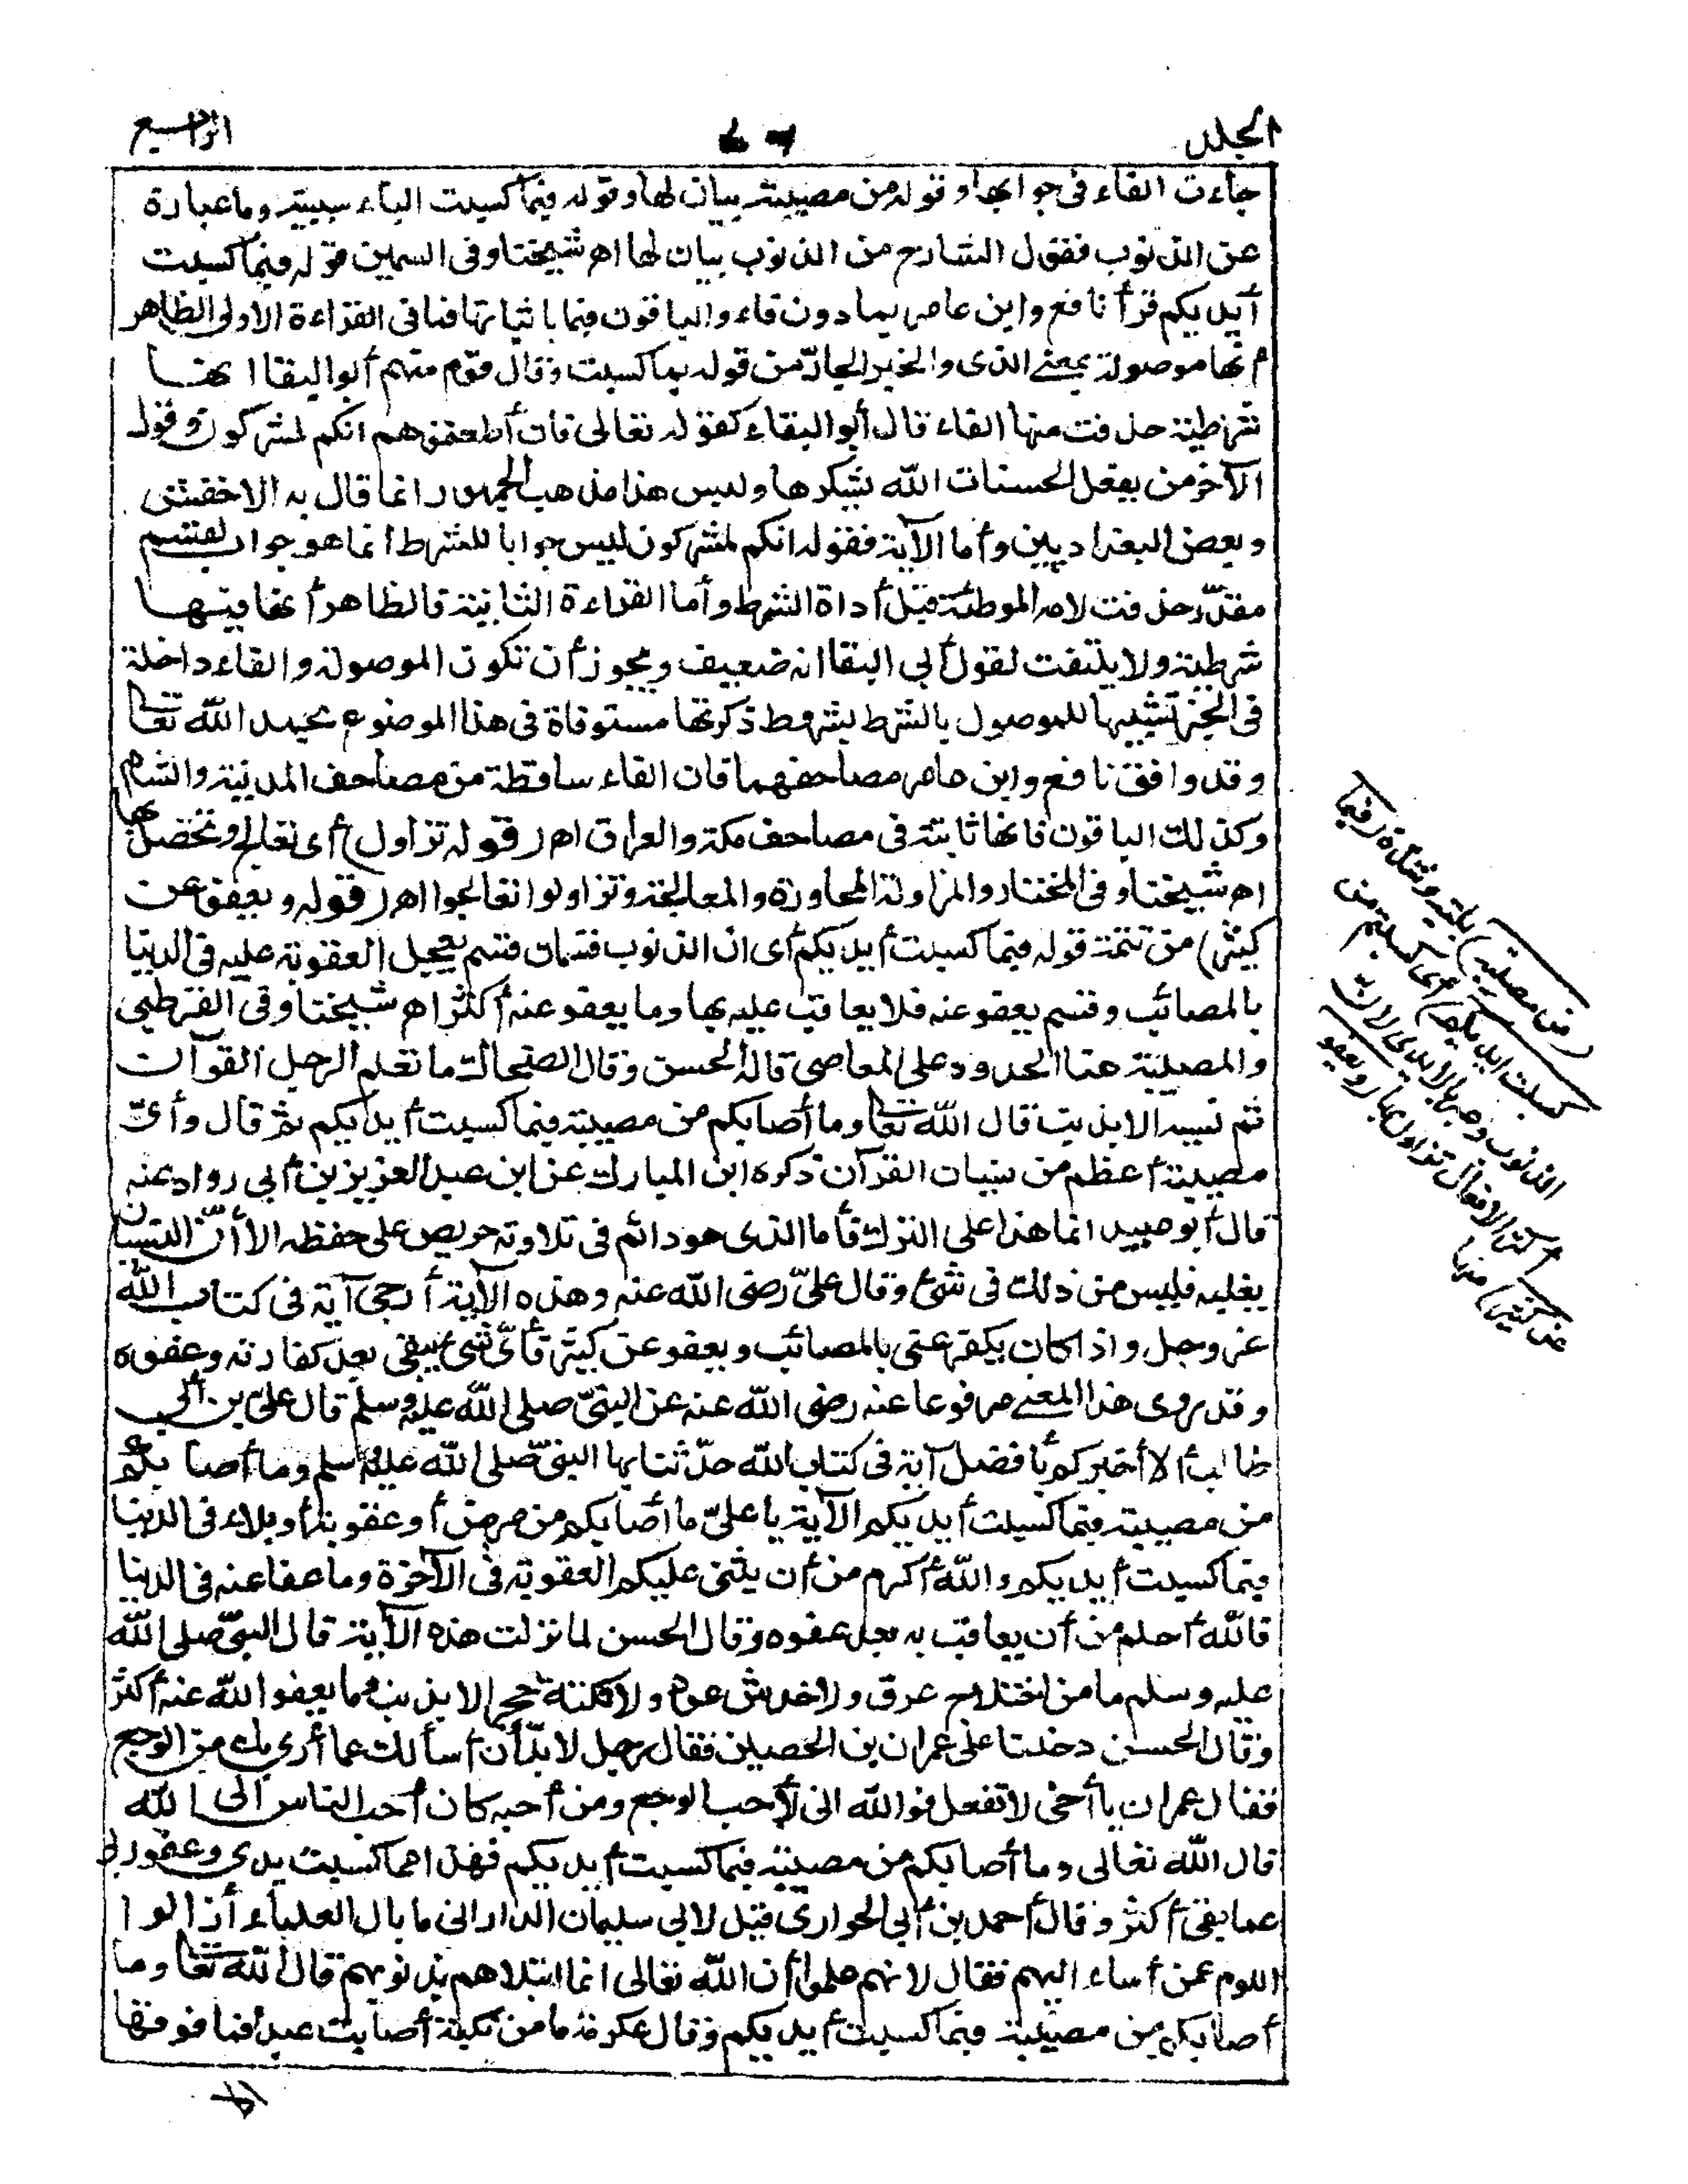 الجلد
٦٤
الرابع
جاءت الفاء فى جوابها وقوله من مصيبة بيان لها وقوله فبما كسبت الباء سببية وما عبارة
عن الذنوب فقول الشارح من الذنوب بيان لها اهـ شيخنا وفى السمين قوله فبما كسبت
أيديكم قرأ نافع وابن عامر بما دون فاء والباقون فبما باثباتها فما فى القراءة الاولى الظاهر
أنها موصولة بمعنى الذى والخبر الجارّ من قوله بما كسبت وقال قوم منهم أبو البقاء انها
شرطية حذفت منها الفاء قال أبو البقاء كقوله تعالى فان أطعتموهم انكم لمشركون وقول
الآخر من يفعل الحسنات الله يشكرها وليس هذا مذهب الجمهور انما قال به الاخفش
وبعض البغداديين وأما الآية فقوله انكم لمشركون ليس جوابا للشرط انما هو جواب لقسم
مقدّر حذفت لامه الموطئة قبل أداة الشرط وأما القراءة الثانية فالظاهر أنها فيها
شرطية ولا يلتفت لقول أبى البقا انه ضعيف ويجوز أن تكون الموصولة والفاء داخلة
فى الخبر تشبيها للموصول بالشرط بشروط ذكرتها مستوفاة فى هذا الموضوع بحمد الله تعالى
وقد وافق نافع وابن عامر مصاحفهما فان الفاء ساقطة من مصاحف المدينة والشام
وكذلك الباقون فانها ثابتة فى مصاحف مكة والعراق اهـ (قوله تزاول) أى تعالج وتحصل بها
اهـ شيخنا وفى المختار والمزاولة المحاورة والمعالجة وتزاولوا تعالجوا اهـ (قوله ويعفو عن
كثير) من تتمة قوله فبما كسبت أيديكم أى ان الذنوب قسمان قسم يعجل العقوبة عليه فى الدنيا
بالمصائب وقسم يعفو عنه فلا يعاقب عليه بها وما يعفو عنه أكثر اهـ شيخنا وفى القرطبى
والمصيبة هنا الحدود على المعاصى قاله الحسن وقال الضحاك ما تعلم الرجل القرآن
ثم نسيه الا بذنب قال الله تعالى وما أصابكم من مصيبة فبما كسبت أيديكم ثم قال وأىّ
مصيبة أعظم من نسيان القرآن ذكره ابن المبارك عن ابن عبد العزيز بن أبى رواد عنه
قال أبو عبيد انما هذا على الترك فأما الذى هو دائم فى تلاوته حريص على حفظه الا أنّ النسيان
يغلبه فليس من ذلك فى شئ وقال علىّ رضى الله عنه وهذه الآية أرجى آية فى كتاب الله
عز وجل واذا كان يكفر عنى بالمصائب ويعفو عن كثير فأىّ شئ يبقى بعد كفارته وعفوه
وقد روى هذا المعنى مرفوعا عنه رضى الله عنه عن النبىّ صلى الله عليه وسلم قال علىّ بن أبى
طالب ألا أخبركم بأفضل آية فى كتاب الله حدّثنا بها النبىّ صلى الله عليه وسلم وما أصابكم
من مصيبة فبما كسبت أيديكم الآية يا علىّ ما أصابكم من مرض أو عقوبة أو بلاء فى الدنيا
فبما كسبت أيديكم والله أكرم من أن يثنى عليكم العقوبة فى الآخرة وما عفا عنه فى الدنيا
فالله أحلم من أن يعاقب به بعد عفوه وقال الحسن لما نزلت هذه الآية قال النبىّ صلى الله
عليه وسلم ما من اختلاج عرق ولا خدش عود ولا نكبة حجر الا بذنب وما يعفو الله عنه أكثر
وقال الحسن دخلنا على عمران بن الحصين فقال رجل لا بدّ أن أسألك عما أرى بك من الوجع
فقال عمران يا أخى لا تفعل فوالله انى لأحب الوجع ومن أحبه كان أحب الناس الى الله
قال الله تعالى وما أصابكم من مصيبة فبما كسبت أيديكم فهذا مما كسبت يدى وعفو ربى
عما بقى أكثر وقال أحمد بن أبى الحوارى قيل لابى سليمان الدارانى ما بال العلماء أزالوا
اللوم عمن أساء اليهم فقال لانهم علموا أن الله تعالى انما ابتلاهم بذنوبهم قال الله تعالى وما
أصابكم من مصيبة فبما كسبت أيديكم وقال عكرمة ما من نكبة أصابت عبدا فما فوقها
(من مصيبة) بلية وشدّة (فبما
كسبت أيديكم) أى كسبتم من
الذنوب وعبر بالايدى لان
أكثر الافعال تزاول بها (ويعفو
عن كثير) منها